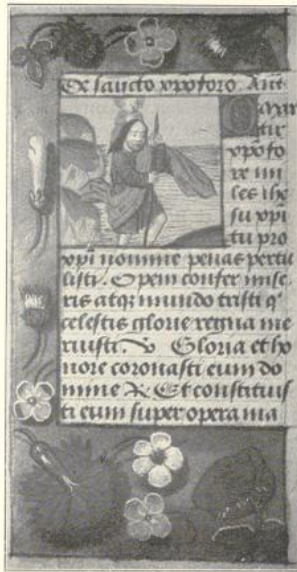 De sancto xpoforo. Ant̄
Martir
xpofo
re mi
les ihe
su xpi
tu pro
xpi nomine penas pertu
listi. Opem confer mise
ris atqꝫ mundo tristi qͥ
celestis glorie regna me
ruisti. ℣ Gloria et ho
nore coronasti eum do
mine ℟ Et constituis
ti eum super opera ma